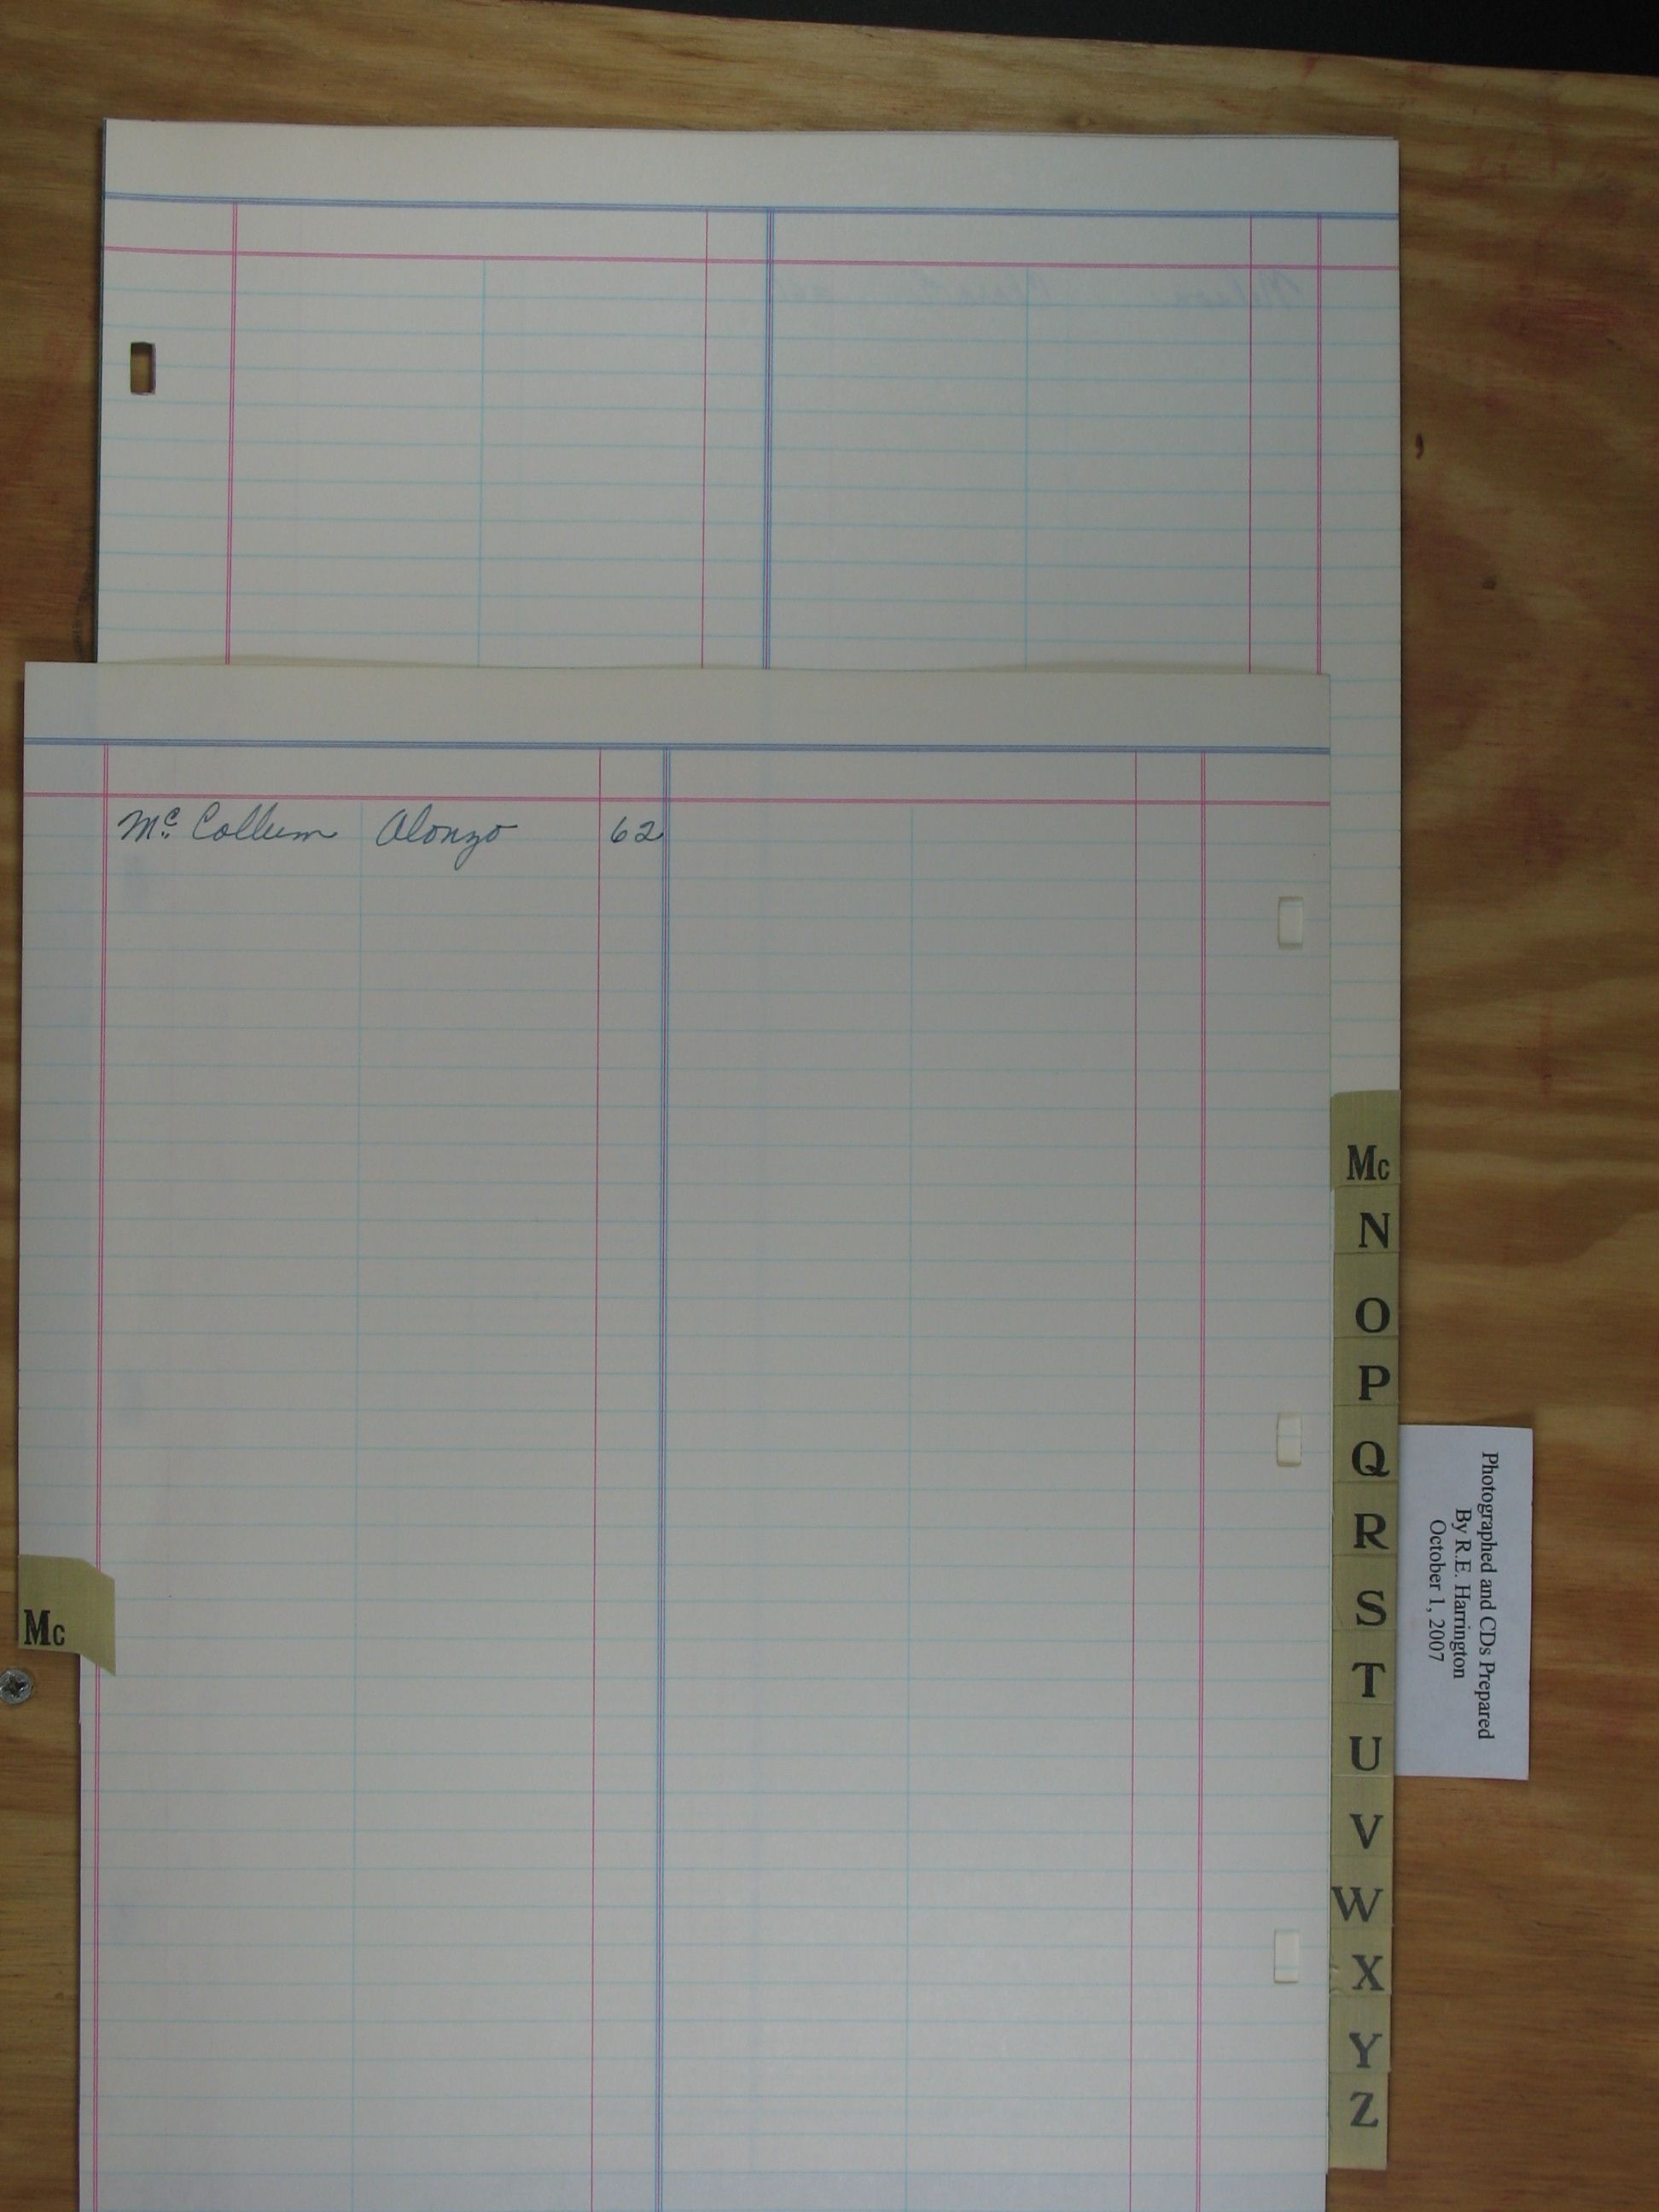 Mc Collum Alonzo 62
Mc
Mc
N
O
P
Q
R
S
T
U
V
W
X
Y
Z
Photographed and CDs Prepared
By R.E. Harrington
October 1, 2007